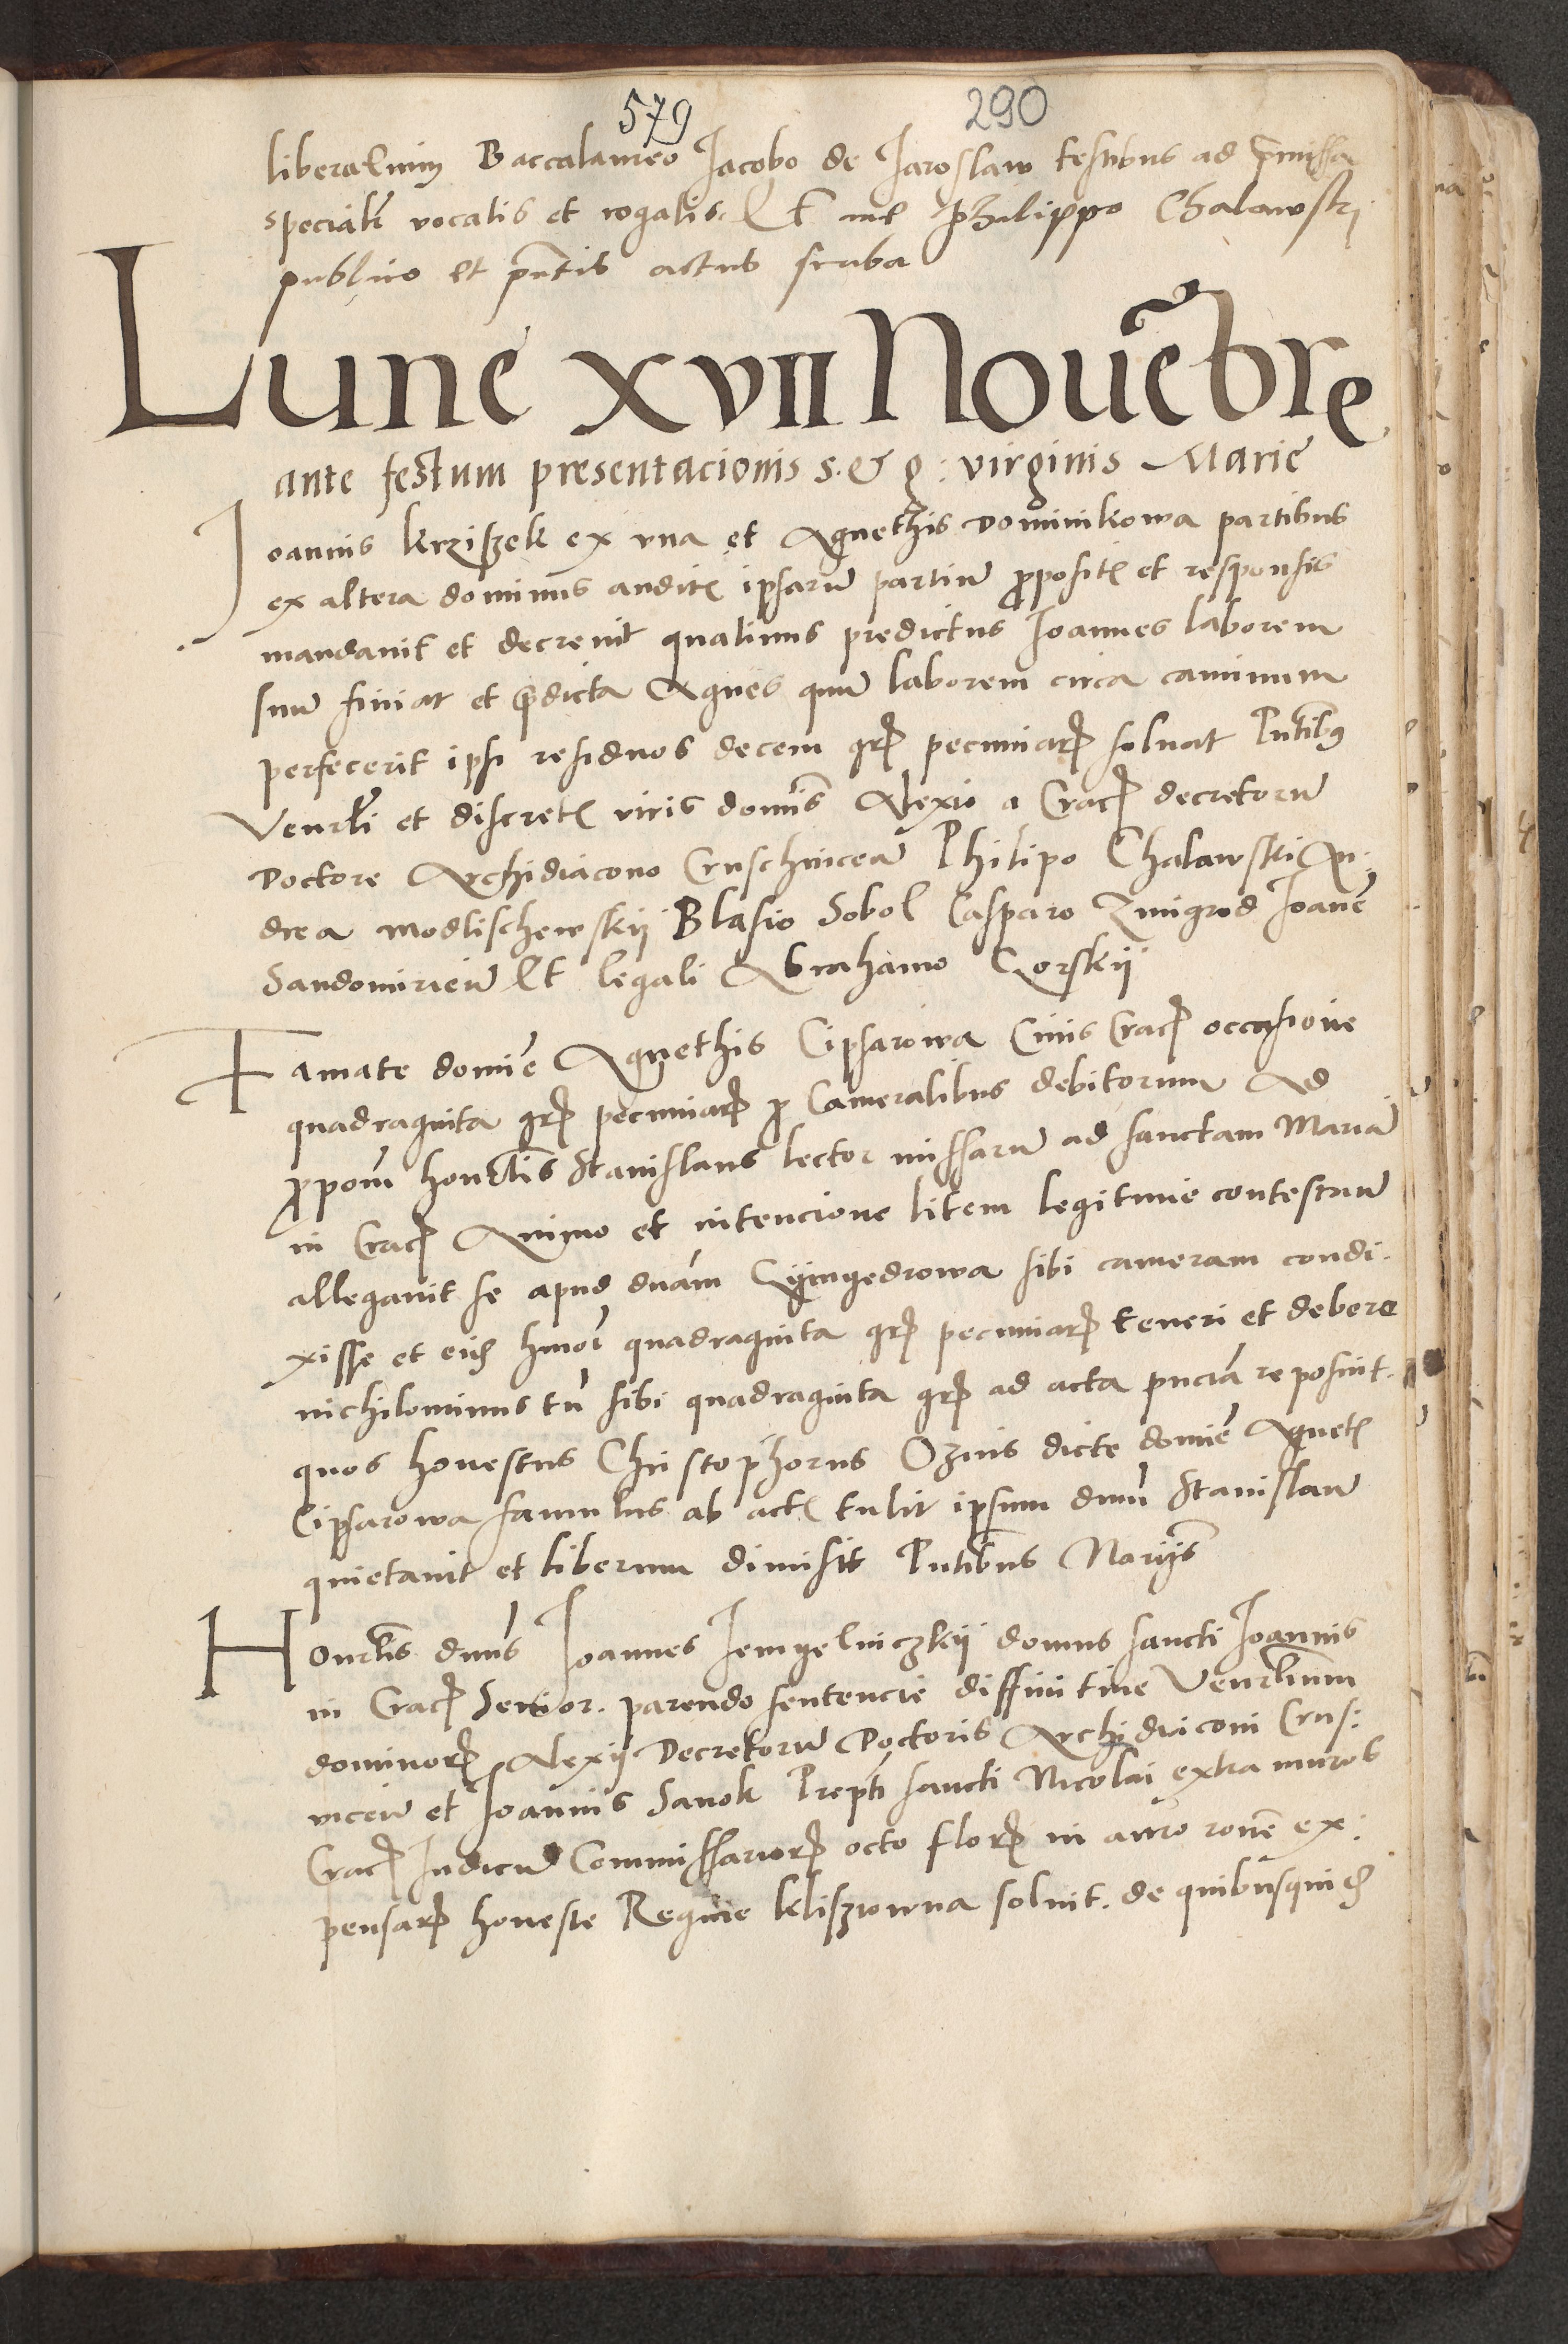 579 290
liberalium Baccalaureo Jacobo de Jaroslaw testibus ad p̄missa
specialr̄ vocatis et rogatis. Et me Philippo Chalawski
publico et pn̄tis actus scriba
Lune XVII Nouēbre
ante festum presentacionis s. & g: virginis Marie
Joannis krziszek ex vna et Agnethis Dominikowa partibus
ex altera dominus auditꝭ ipsarū partiū ꝓpositꝭ et responsis
mandauit et decreuit quatinus predictus Joannes laborem
suū finiat et p̄dicta Agnes quū laborem circa caminum
perfecerit ipsi residuos decem grꝭ pecuniarꝝ soluat Pntibꝰ
Venrli et discretꝭ viris domīs Alexio a Cracꝭ decretorū
Doctore Archidiacono Cruschuiceń Philipo Chalawski An:
drea Modlischewskij Blasio Sobol Casparo Zmigrod Joanē
Sandomirień Et legali Abrahamo Gorskij
Famate domīe Agnethis Cipsarowa Ciuis Cracꝭ occasione
quadraginta grꝭ pecuniarꝝ ꝓ Cameralibus debitorum Ad
ꝓpom̄ honrlīs Stanislaus lector missarū ad sanctam Mariā
in Cracꝭ Animo et intencione litem legitime contestań
allegauit se apud dnām Gÿmgedrowa sibi cameram condi-
xisse et eidꝫ hmōi quadraginta grꝭ pecuniarꝝ teneri et debere
nichilominus tn̄ sibi quadraginta grꝭ ad acta pnciā reposuit.
quos honestus Christophorus Ozuis dicte domīe Agnetꝭ
Cipsarowa famulus ab actꝭ tulit ipsum dnm̄ Stanislaū
quietauit et liberum dimisit Pntībus Narijs
Honrlis dnūs Joannes Jemgelniczkij domus sancti Joannis
in Cracꝭ Senior. parendo sentencie diffinitiue Venrlium
dominorꝝ Alexij Decretorū Doctoris Archidiaconi Crus:
viceń et Joannis Sanok Prepti sancti Nicolai extra muros
Cracꝭ Judicū Commissariorꝝ octo florꝭ in auro ronē ex:
pensarꝝ honeste Regine kliszowna soluit. de quibusquidꝫ